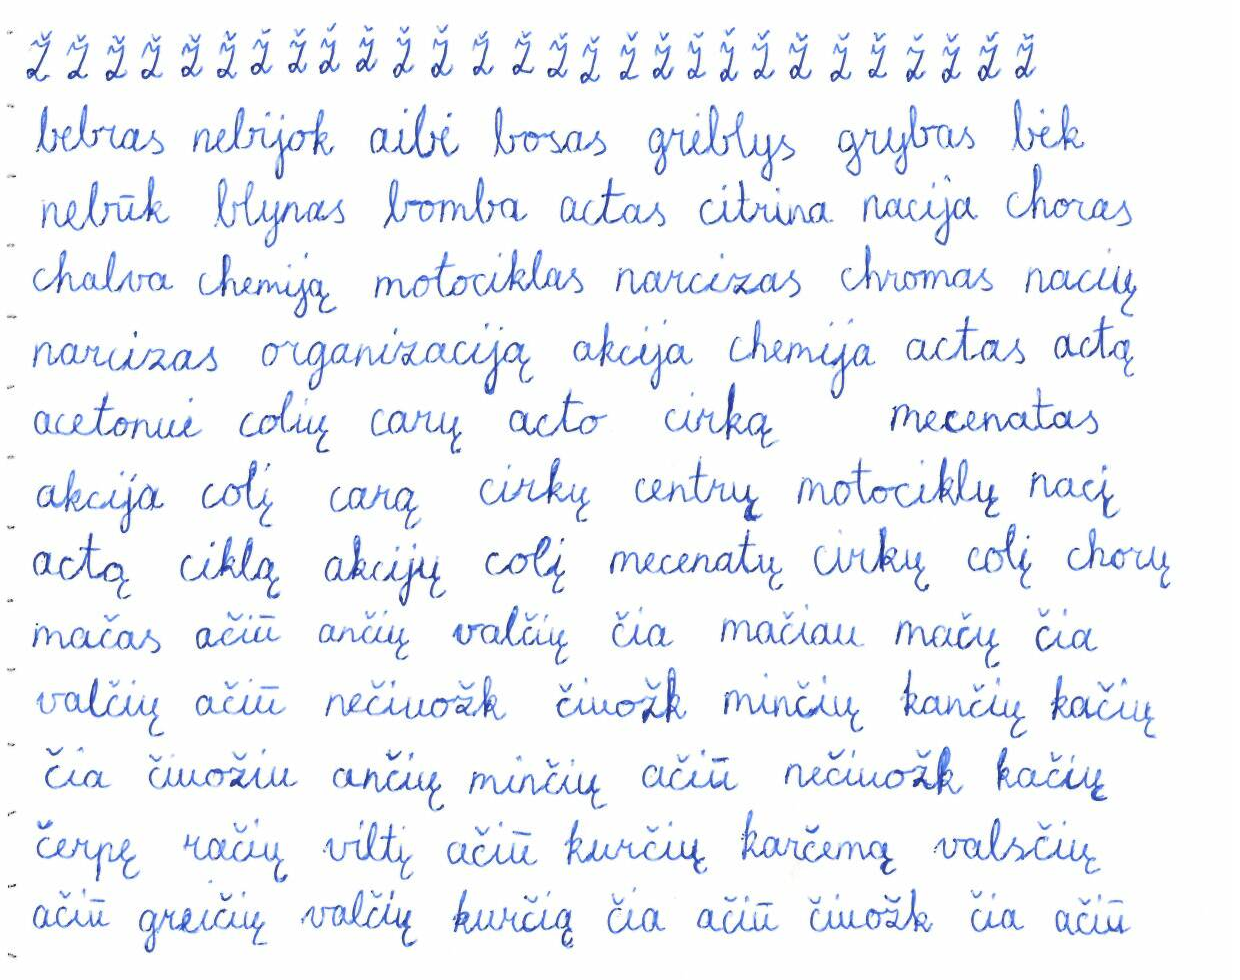 Ž Ž Ž Ž Ž Ž Ž Ž Ž Ž Ž Ž Ž Ž Ž Ž Ž Ž Ž Ž Ž Ž Ž Ž Ž Ž Ž Ž
bebras nebijok aibė bosas grėblys grybas bėk
nebūk blynas bomba actas citrina nacija choras
chalva chemiją motociklas narcizas chromas nacių
narcizas organizaciją akcija chemija actas actą
acetonui colių carų acto cirką mecenatas
akcija colį carą cirkų centrų motociklų nacį
actą ciklą akcijų colį mecenatų cirkų colį chorų
mačas ačiū ančių valčių čia mačiau mačų čia
valčių ačiū nečiuožk čiuožk minčių kančių kačių
čia čiuožiu ančių minčių ačiū nečiuožk kačių
čerpę račių viltį ačiū kurčių karčemą valsčių
ačiū greičių valčių kurčią čia ačiū čiuožk čia ačiū